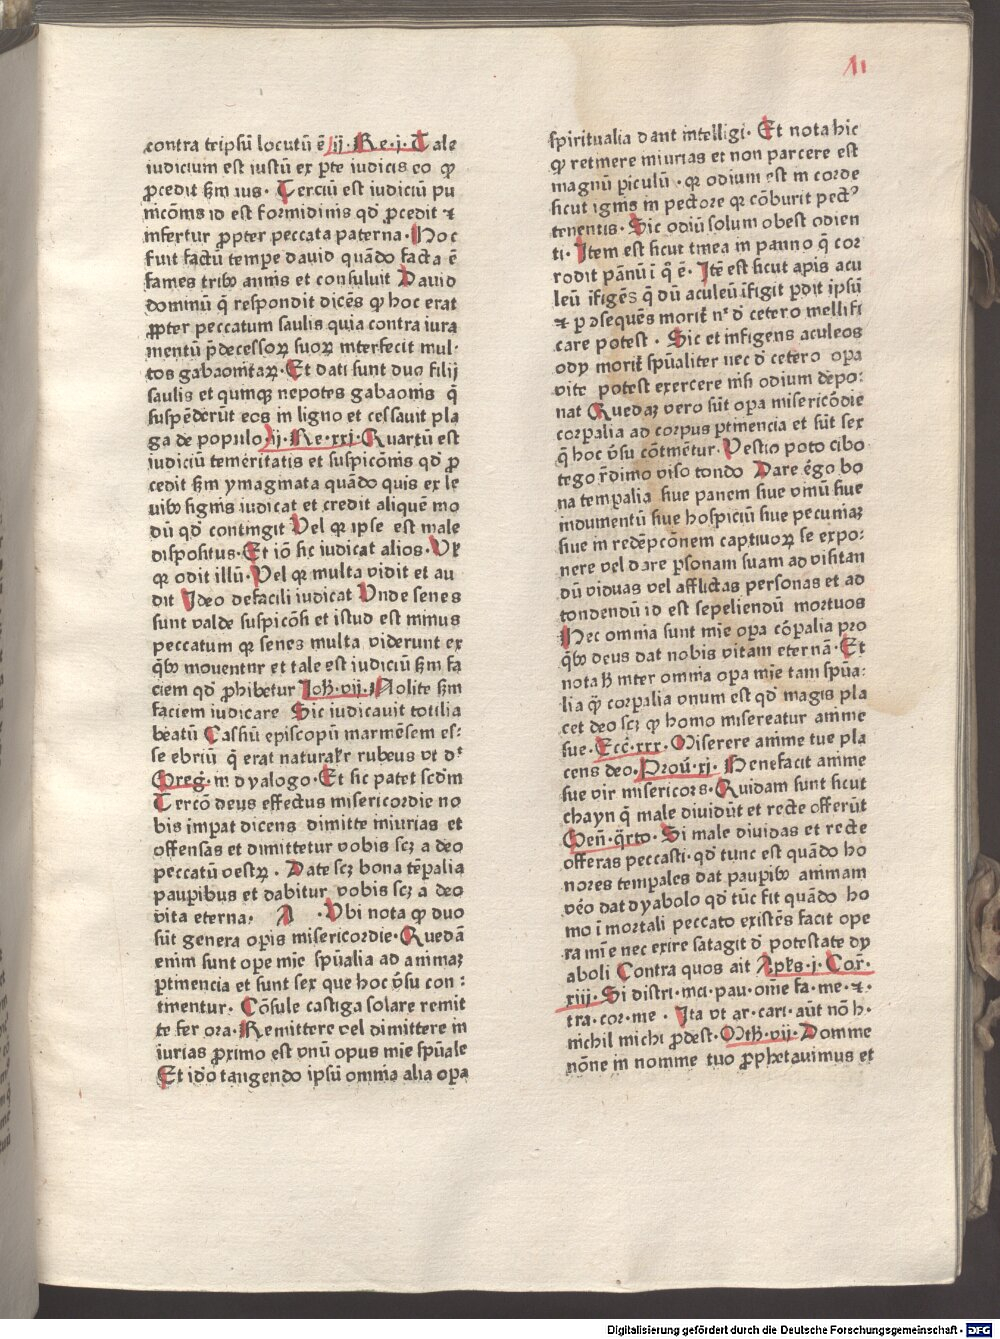 11
contra teipsū locutū ē ij· Re·j· Tale
iudicium est iustū ex ꝑte iudicis eo ꝙ
ꝓcedit ẜm ius· Terciū est iudiciū pu
nicōnis id est formidinis qd̄ ꝓcedit ⁊
infertur ꝓpter peccata paterna· Hoc
fuit factū tempe dauid quādo facta ē
fames tribꝰ annis et consuluit Dauid
dominū q̄ respondit dicēs ꝙ hoc erat
ꝓpter peccatum saulis quia contra iura
mentū p̄decessoꝝ suoꝝ interfecit mul·
tos gabaonitaꝝ· Et dati sunt duo filij
saulis et quinqꝫ nepotes gabaonis q̄
suspēderūt eos in ligno et cessauit pla
ga de populo· ij· Re·xxj· Quartū est
iudiciū temeritatis et suspicōnis qd̄ ꝓ
cedit ẜm ymaginata quādo quis ex le
uibꝰ signis iudicat et credit aliquē mo
dū qd̄ contingit Vel qꝛ ipse est male
dispositus· Et iō sic iudicat alios· Vel
qꝛ odit illū· Vel qꝛ multa vidit et au
dit Ideo defacili iudicat Vnde senes
sunt valde suspicōsi et istud est minus
peccatum qꝛ senes multa viderunt ex
q̄bꝰ mouentur et tale est iudiciū ẜm fa
ciem qd̄ ꝓhibetur Joh̄·vij· Nolite ẜm
faciem iudicare Sic iudicauit totilia
beātū Cassiū episcopū marinēsem es⸗
se ebriū q̄ erat naturalr̄ rubeus vt dʳ
Greḡ· in dyalogo· Et sic patet scd̄m
Tercō deus effectus misericordie no
bis imꝑat dicens dimitte iniurias et
offensas et dimittetur vobis scꝫ a deo
peccatū vestꝝ · Date scꝫ bona tēꝑalia
pauꝑibus et dabitur vobis scꝫ a deo
vita eterna· A · Vbi nota ꝙ duo
sūt genera oꝑis misericordie· Quedā
enim sunt oꝑe mīe spūalia ad animaꝫ
ꝑtinencia et sunt sex que hoc v̄su con⸗
tinentur· Cōsule castiga solare remit
te fer ora· Remittere vel dimittere in
iurias ꝓximo est vnū opus mīe spūale
Et idō tangendo ipsū omnia alia oꝑa
spiritualia dant intelligi· Et nota hic
ꝙ retinere iniurias et non parcere est
magnū ꝑiculū · qꝛ odium est in corde
sicut ignis in pectore qꝛ cōburit pectꝰ
tenentis· Sic odiū solum obest odien
ti· Item est sicut tinea in panno q̄ cor
rodit pānū ī q̄ ē· Itē est sicut apis acu
leū īfigēs q̄ dū aculeū īfigit ꝑdit ipsū
⁊ ꝑ ↄsequēs morit̄ nec d̄ cetero mellifi
care potest · Sic et infigens aculeos
odij morit̄ spūaliter nec d̄ cetero oꝑa
vite potest exercere nisi odium depo⸗
nat Quedaꝫ vero sūt oꝑa misericōdie
corꝑalia ad corpus ꝑtinencia et sūt sex
q̄ hoc v̄su cōtinētur· Vestio poto cibo
tego r̄dimo viso condo Dare ēgo bo
na temꝑalia siue panem siue vinū siue
indumentū siue hospiciū siue pecuniaꝫ
siue in redēpcōnem captiuoꝝ se expo⸗
nere vel dare ꝑsonam suam ad visitan
dū viduas vel afflictas personas et ad
condendū id est sepeliendū mortuos
Hec omnia sunt mīe oꝑa cōꝑalia pro
q̄bꝰ deus dat nobis vitam eternā· Et
nota ꝙ inter omnia oꝑa mīe tam spūa⸗
lia q̄ corꝑalia vnum est qd̄ magis pla
cet deo scꝫ ꝙ homo misereatur anime
sue· Ecc̄·xxx· Miserere anime tue pla
cens deo· Prou̅·xj· Benefacit anime
sue vir misericors· Quidam sunt sicut
chayn q̄ male diuidūt et recte offerūt
Gen̄·q̄rto· Si male diuidas et recte
offeras peccasti· qd̄ tunc est quādo ho
nores temꝑales dat pauꝑibꝰ animam
v̄o dat dyabolo qd̄ tūc fit quādo ho
mo ī mortali peccato existēs facit oꝑe
ra mīe nec exire satagit d̄ potestate dy
aboli Contra quos ait Apl̄s·j·Cor̄·
xiij· Si distri·mei·pau·om̄e fa·me·⁊·
tra·cor·me· Ita vt ar·cari·aūt nō h·
nichil michi ꝓdest· Mth̄·vij· Domine
nōne in nomine tuo ꝓphetauimus et
Digitalisierung gefördert durch die Deutsche Forschungsgemeinschaft · DFG